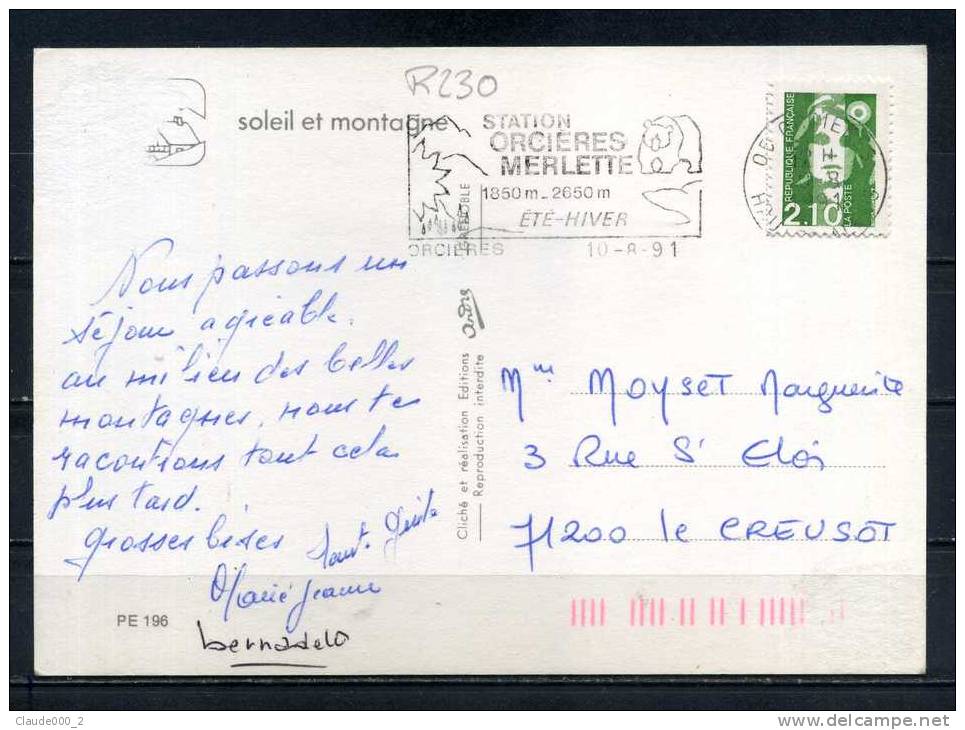 R230
soleil et montagne
STATION
ORCIÈRES
MERLETTE
1850 m - 2650 m
ÉTÉ-HIVER
ORCIÈRES 10-8-91
REPUBLIQUE FRANÇAISE
LA POSTE
2,10
GRENOBLE
Cliché et réalisation Editions andre
Reproduction interdite
Nous passons un
séjour agréable.
au milieu des belles
montagnes, nous te
racontrons tout cela
plus tard.
grosses bises
Marie Jeanne
bernadette
Mme MOYSET Marguerite
3 Rue St Eloi
71200 le CREUSOT
PE 196
Claude000_2
www.delcampe.net